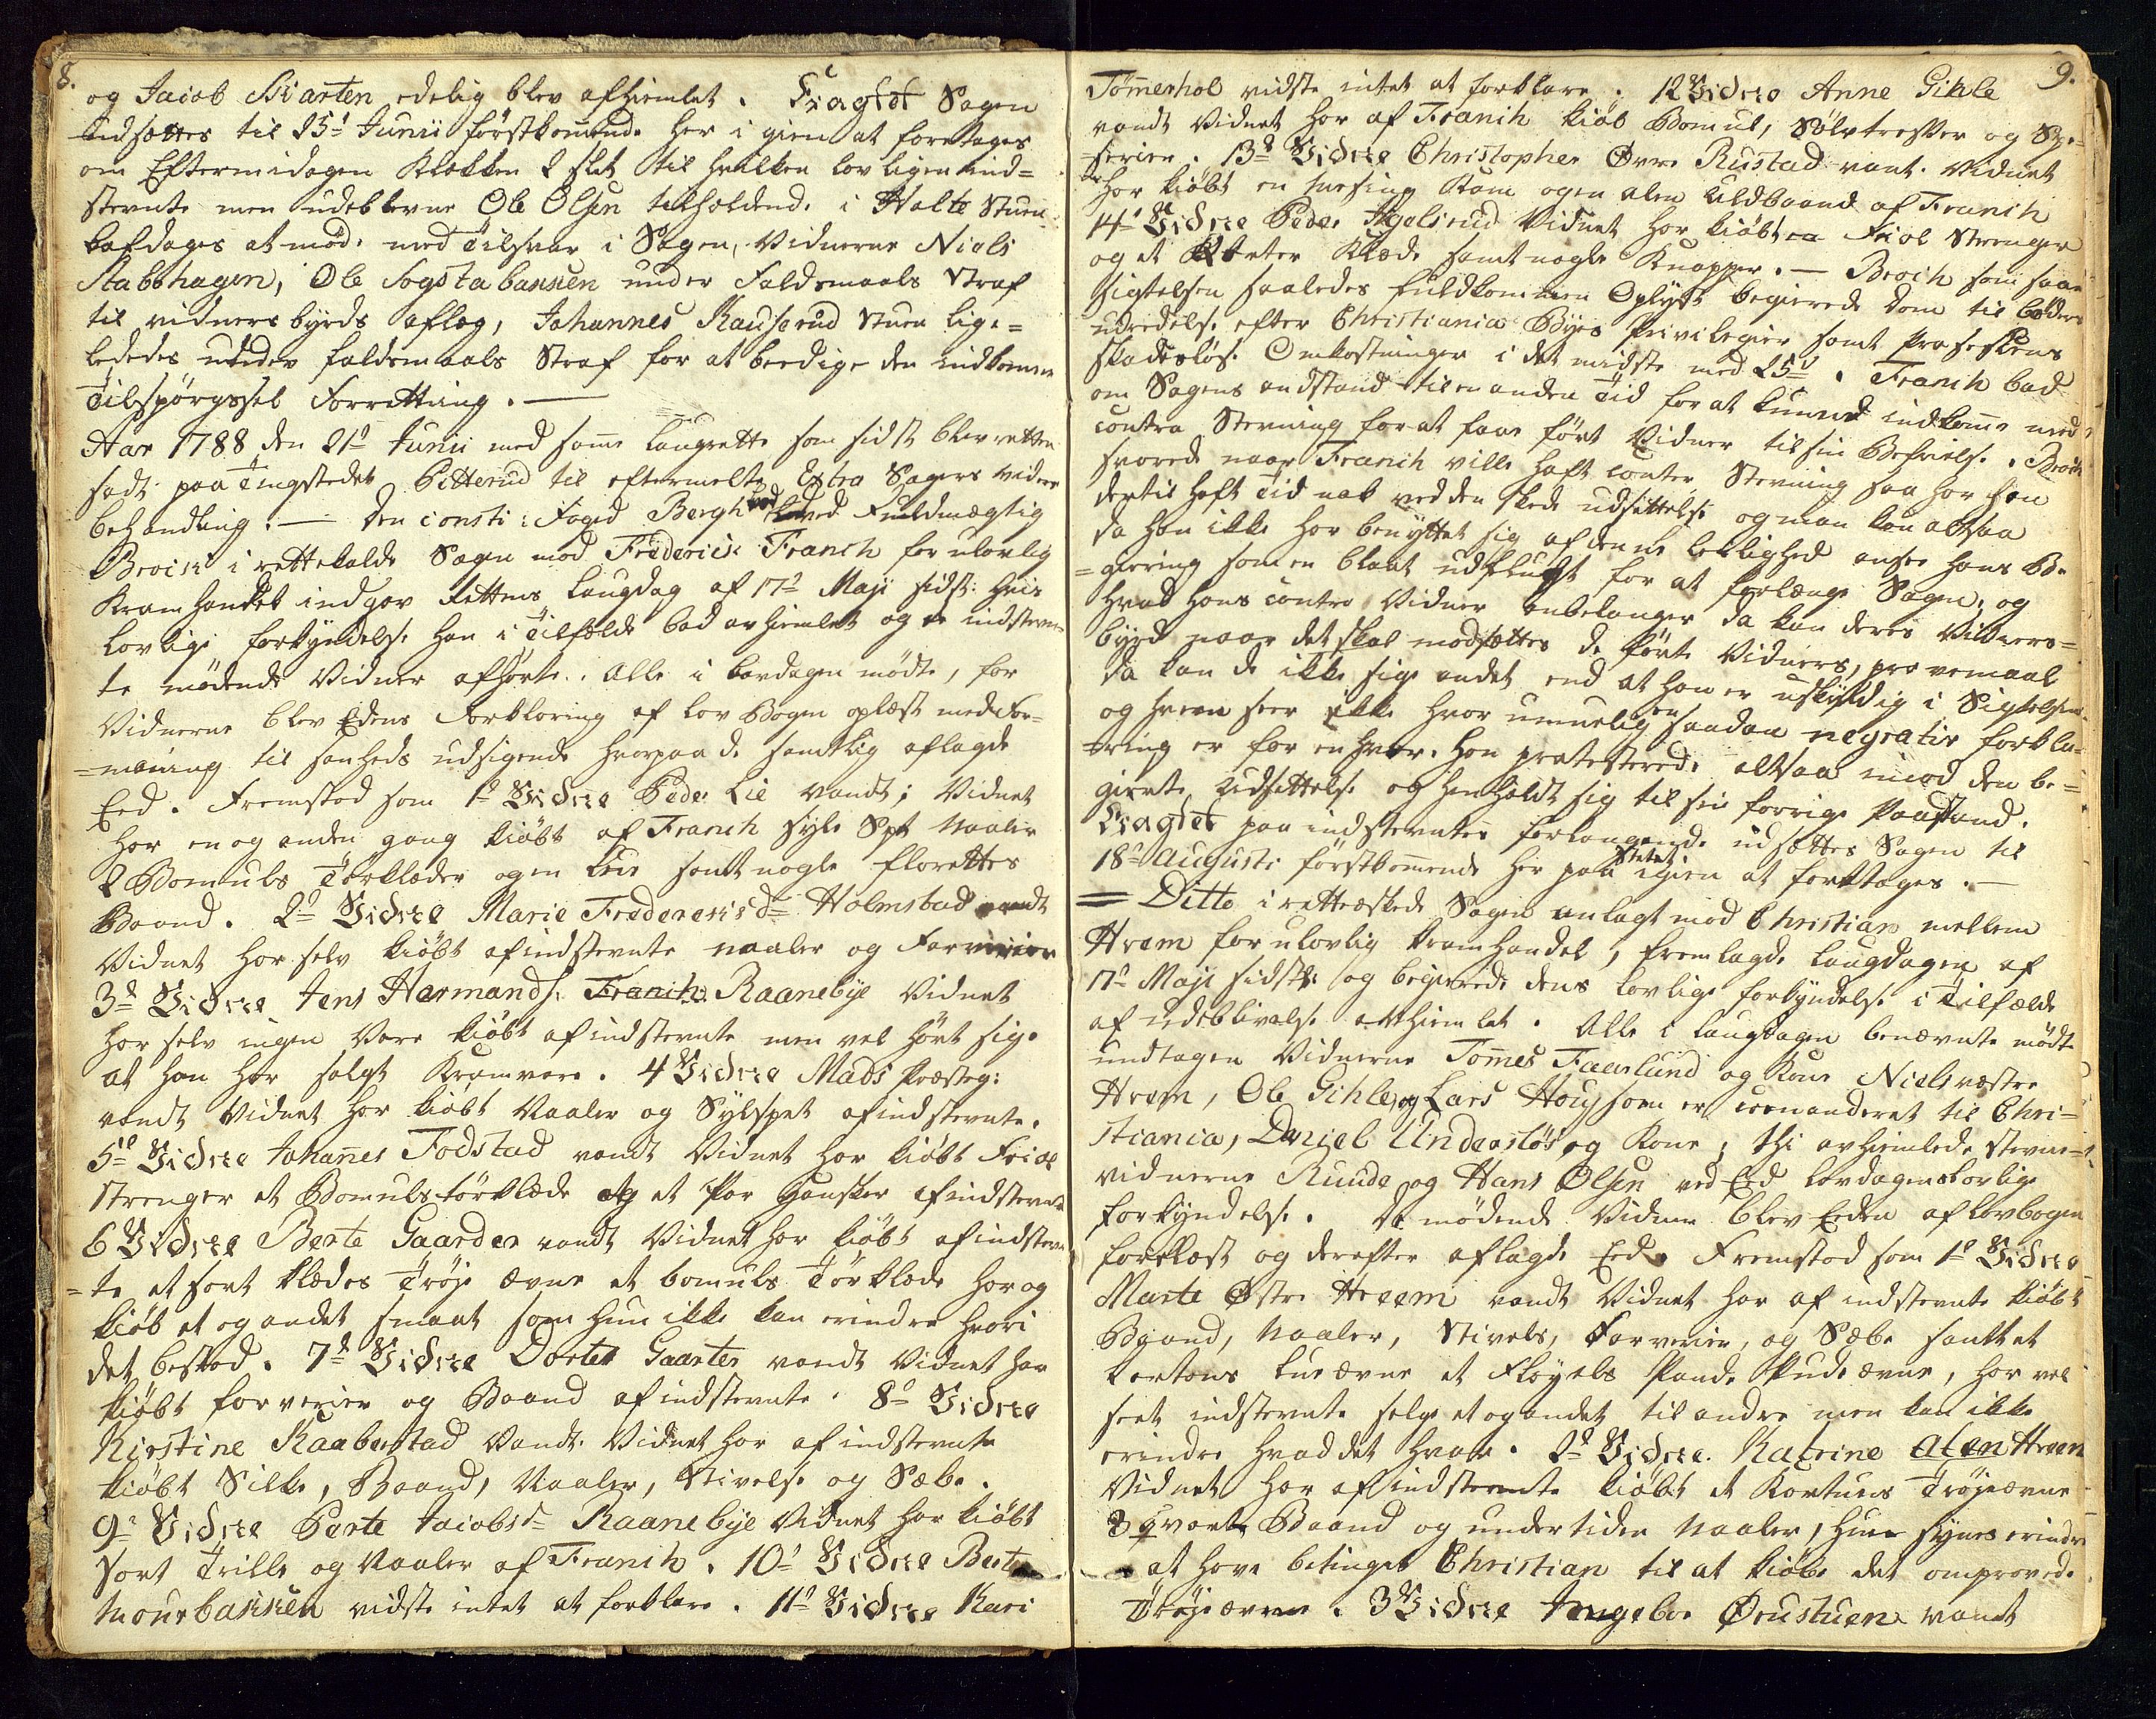 8.
og Jacob Skiarten edelig blev afhiemlet. Eragtet Sagen
udsættes til 25d Junii förstkommende her i gien at foretages
om Eftermidagen Klokken 2 slet til hvilken lovligen ind=
stevnte men udeblevne Ole Olsen tilholdende i Halte Stuen
befdages at møde med Tilsvar i Sagen, Vidnerne Niels
Stabbhagen, Ole Sogstabakken under Faldsmaals Straf
til vidnersbyrds aflæg, Johannes Rauserud Stuen lige=
ledes under faldsmaals Straf for at beedige den indkomne
Tilspörgssel forretning. —
Aar 1788 den 21d Junii med samme laugrette som sidst blev retten
sadt paa Tingstedet Pitterud til eftermelte Extra Sagers videre
behandling. — Den consti: Foged Bergh ved Fuldmægtig
Broch i rettekalde Sagen mod Frederich Franch for ulovlig
Kramhandel indgav Rettens Laugdag af 17d Maji sidst: hvis
lovlige forkyndelse han i Tilfælde bad avhiemlet og de indstevn=
te mødende Vidner afhørte. Alle i lavdagen mödte, for
Vidnerne blev Edens Forklaring af lov Bogen oplæst med For=
=maning til sanheds udsigende hvorpaa de samtlig aflagde
Eed. Fremstod som 1d Vidne Peder Lie vandt; Vidnet
har en og anden gang kiöbt af Franch syle Spt Naaler
2 Bomuls Törklæder og en Lue samt nogle florettes
Baand. 2d Vidne Marie Frederichsd Holmstad vandt
Vidnet har selv kiöbt af indstevnte naaler og Farverier
3d Vidne Jens Harmands: Franch Raanebye Vidnet
har selv ingen Vare kiöbt af indstevnte men vel hört sige
at han har solgt Kramvare. 4 Vidne Mads Præsteg:
vandt Vidnet har kiöbt Naaler og Sylspet af indstevnte.
5d Vidne Johannes Fodstad vandt Vidnet har kiöbt Friol
Strenger et Bomuls törklæde og et Par Hansker af indstevnte
6 Vidne Berte Gaarder vandt Vidnet har kiöbt af indstevn
=te et sort klædes Tröje ærme et bomuls Törklæde har og
kiöb et og andet smaat som hun ikke kan erindre hvori
det bestod. 7d Vidne Dortet Gaarter vandt Vidnet har
kiöbt farverier og Baand af indstevnte. 8d Vidne
Kiestine Raaberstad Vandt. Vidnet har af indstevnte
kiöbt Silke, Baand, Naaler, Stivelse og Sæbe.
9d Vidne Perte Jacobsd Raanebye Vidnet har kiöbt
Sort Trille og Naaler af Franch. 10d Vidne Berte
Mourbakken vidste intet at forklare. 11d Vidne Kari
9.
Tömmerhol vidste intet at forklare. 12 Vidne Anne Gihle
vandt Vidnet har af Franch kiöb Bomul, Sölvtresser og Spe=
=serier. 13d Vidne Christopher Övre Rustad vant. Vidnet
har kiöbt en messing Kam og en alen Uldbaand af Franch
14d Vidne Peder Hgelsrud Vidnet har kiöbt Friol Strenger
og et Klæde samt nogle Knapper. — Broch som saae
sigtelsen saaledes fuldkommen Oplyst begierede dom til böders
udredelse efter Christiania Byes Privilegier samt Processens
skadeslöse Omkostninger i det midste med 25d. Franch bad
om Sagens andstand til en anden Tid for at kunde indkomme med
contra Stevning for at faae fört Vidner til sin Befrielse. Broch
svarede naar Franch ville haft contra Stevning saa har han
dertil haft Tid nok ved den skede udsettelse og man kan altsaa
da han ikke har benyttet sig af denne leilighed ansee hans Be
=giering som en blaat udflugt for at forlænge Sagen, og
hvad hans contra Vidner anbelanger da kan deres Vidners=
byrd naar det skal modsættes de förte Vidners, provemaal
da kan de ikke sige andet end at han er uskyldig i Sigtelsen
og hveen seer ikke hvor umuelig en saadan negrativ forkla=
=ring er for enhver. han protesterede altsaa imod den be=
gierte Udsettelse og henholdt sig til sin forrige Paastand.
Eragtet paa indstevntes forlangende udsættes Sagen til
18d Augusti förstkommende her paa Stetet igien at foretages. —
= Ditto i retteæskede Sagen anlagt mod Christian mellem
Hvæm for ulovlig kramhandel, fremlagde laugdagen af
17d Maji sidst: og begierede dens lovlige forkyndelse i Tilfælde
af udeblivelse avhiemlet. Alle i laugdagen benævnte mödte
undtagen Vidnerne Tommes Faarlund og Kone Niels vestre
Hvæm, Ole Gihle, og Lars Houg som er comanderet til Chri=
stiania, Daniel Undersløs og Kone; thi avhiemlede Stevne=
vidnerne Ruude og Hans Olsen ved Eed lavdagens lovlige
forkyndelse. De mödende Vidner blev Eeden af lovbogen
forelæst og derefter aflagde Eed. Fremstod som 1d Vidne
Marte Østre Hveem vandt Vidnet har af indstevnte kiöbt
Baand, Naaler, Stivels, Farverier, og Sæbe samt et
kartons lue ærme et Flöyels Pande Pude ærme, har vel
seet indstevnte selge et og andet til andre men kan ikke
erindre hvad det hvar. 2d Vidne Katrine aten Hveem
Vidnet har af indstevnte kiöbt et Kartuns Tröjeærme
3 qvarte Baand og undertiden Naaler, hun synes erindre
at have betinget Christian til at kiöbe det omprovede
Tröjeærme. 3 Vidne Jngebor Ørustuen vandt